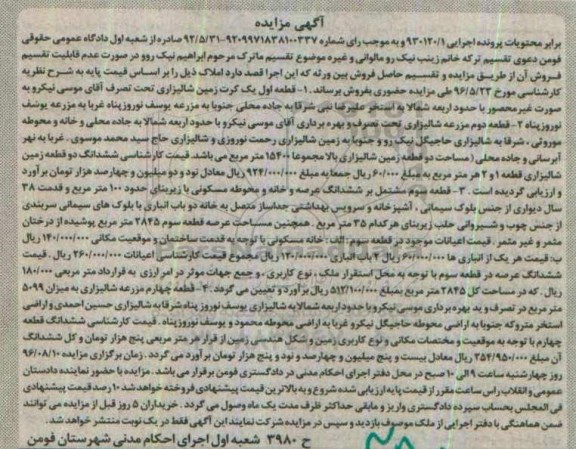 آگهی مزایده
برابر محتویات پرونده اجرایی ۹۳۰۱۲۰/۱ و به موجب رای شماره ۹۲۰۹۹۷۱۸۳۸۱۰۰۳۳۷-۹۲/۵/۳۱ صادره از شعبه اول دادگاه عمومی حقوقی
فومن دعوی تقسیم ترکه خانم زینب نیک رو ماتوانی و غیره موضوع تقسیم ماترک مرحوم ابراهیم نیک رو و در صورت عدم قابلیت تقسیم
فروش آن از طریق مزایده و تقسیم حاصل فروش بین ورثه که این اجرا قصد دارد املاک ذیل را بر اساس قیمت پایه به شرح نظریه
کارشناسی مورخ ۹۶/۵/۲۳ طی مزایده حضوری بفروش برساند. ۱- قطعه اول یک کرت زمین شالیزاری تحت تصرف آقای موسی نیکرو به
صورت غیر محصور با حدود اربعه شمالا به استخر علیرضا نبی شرقا به جاده محلی جنوبا به مزرعه یوسف نوروزپناه غربا به مزرعه یوسف
نوروزپناه ۲- قطعه دوم مزرعه شالیزاری تحت تصرف و بهره برداری آقای موسی نیکرو با حدود اربعه شمالا به جاده محلی و خانه و محوطه
موروثی، شرقا به شالیزاری حاجیگل نیک رو و جنوبا به زمین شالیزاری رحمت نوروزی و شالیزاری حاج سید محمد موسوی، غربا به نهر
آبرسانی و جاده محلی (مساحت دو قطعه زمین شالیزاری بالا مجموعا ۱۵۴۰۰ متر مربع می باشد. قیمت کارشناسی ششدانگ دو قطعه زمین
شالیزاری قطعه ۱ و ۲ هر متر مربع به مبلغ ۶۰/۰۰۰ ریال جمعا به مبلغ ۹۲۴/۰۰۰/۰۰۰ ریال معادل نود و دو میلیون و چهارصد هزار تومان برآورد
و ارزیابی گردیده است. ۳- قطعه سوم مشتمل بر ششدانگ عرصه و خانه و محوطه مسکونی با زیربنای حدود ۱۰۰ متر مربع و قدمت ۳۸
سال دیواری از جنس بلوک سیمانی، آشپزخانه و سرویس بهداشتی جداساز متصل به خانه دو باب انباری با بلوک های سیمانی سربندی
از جنس چوب و شیروانی حلب زیربنای هر کدام ۳۵ متر مربع. همچنین مساحت عرصه قطعه سوم ۲۸۴۵ متر مربع پوشیده از درختان
مثمر و غیر مثمر. قیمت اعیانات موجود در قطعه سوم: الف: خانه مسکونی با توجه به قدمت ساختمان و موقعیت مکانی ۱۴۰/۰۰۰/۰۰۰ ریال
ب: قیمت هر یک از انباری ها ۶۰/۰۰۰/۰۰۰ ریال ۲ باب انباری ۱۲۰/۰۰۰/۰۰۰ ریال مجموع قیمت کارشناسی اعیانات ۲۶۰/۰۰۰/۰۰۰ ریال. قیمت
ششدانگ عرصه در قطعه سوم با توجه به محل استقرار ملک، نوع کاربری، و جمع جهات موثر در امر ارزی به قرارداد متر مربعی ۱۸۰/۰۰۰
ریال. که در مساحت کل ۲۸۴۵ متر مربع بمبلغ ۵۱۲/۱۰۰/۰۰۰ ریال برآورد و تعیین می گردد. ۴- قطعه چهارم مزرعه شالیزاری به میزان ۵۰۹۹
متر مربع در تصرف و ید بهره برداری موسی نیکرو با حدود اربعه شمالا به شالیزاری یوسف نوروز پناه شرقا به شالیزاری حسین احمدی و اراضی
استخر متروکه جنوبا به اراضی محوطه حاجیگل نیکرو غربا به اراضی محوطه محمود و یوسف نوروزپناه. قیمت کارشناسی ششدانگ قطعه
چهارم با توجه به موقعیت و مختصات مکانی و نوع کاربری زمین و شکل هندسی زمین از قرار هر متر مربعی پنج هزار تومان و کل ششدانگ
آن مبلغ ۲۵۴/۹۵۰/۰۰۰ ریال معادل بیست و پنج میلیون و چهارصد و نود و پنج هزار تومان برآورد می گردد. زمان برگزاری مزایده ۹۶/۰۸/۱۰
روز چهارشنبه ساعت ۹ الی ۱۰ صبح در محل دفتر اجرای احکام مدنی در دادگستری فومن برقرار می باشد. مزایده با حضور نماینده دادستان
عمومی و انقلاب راس ساعت مقرر از قیمت پایه ارزیابی شده شروع و به بالاترین قیمت پیشنهادی فروخته خواهد شد ۱۰ درصد قیمت پیشنهادی
فی المجلس بحساب سپرده دادگستری واریز و مابقی حداکثر ظرف مدت یک ماه وصول می گردد. خریداران ۵ روز قبل از مزایده می توانند
ضمن هماهنگی با دفتر اجرایی از ملک موصوف بازدید و سپس در مزایده شرکت نمایند این آگهی فقط در یک نوبت منتشر خواهد شد.
ح ۳۹۸۰ شعبه اول اجرای احکام مدنی شهرستان فومن